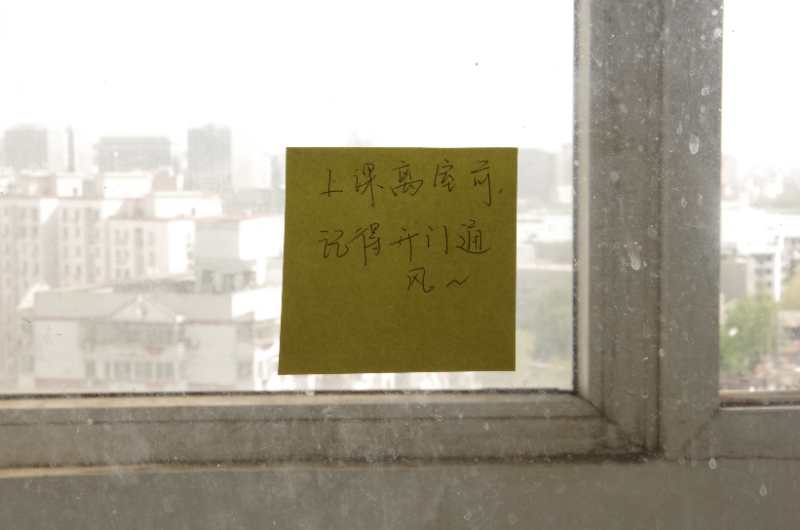 上课离室前,
记得开门通
风~